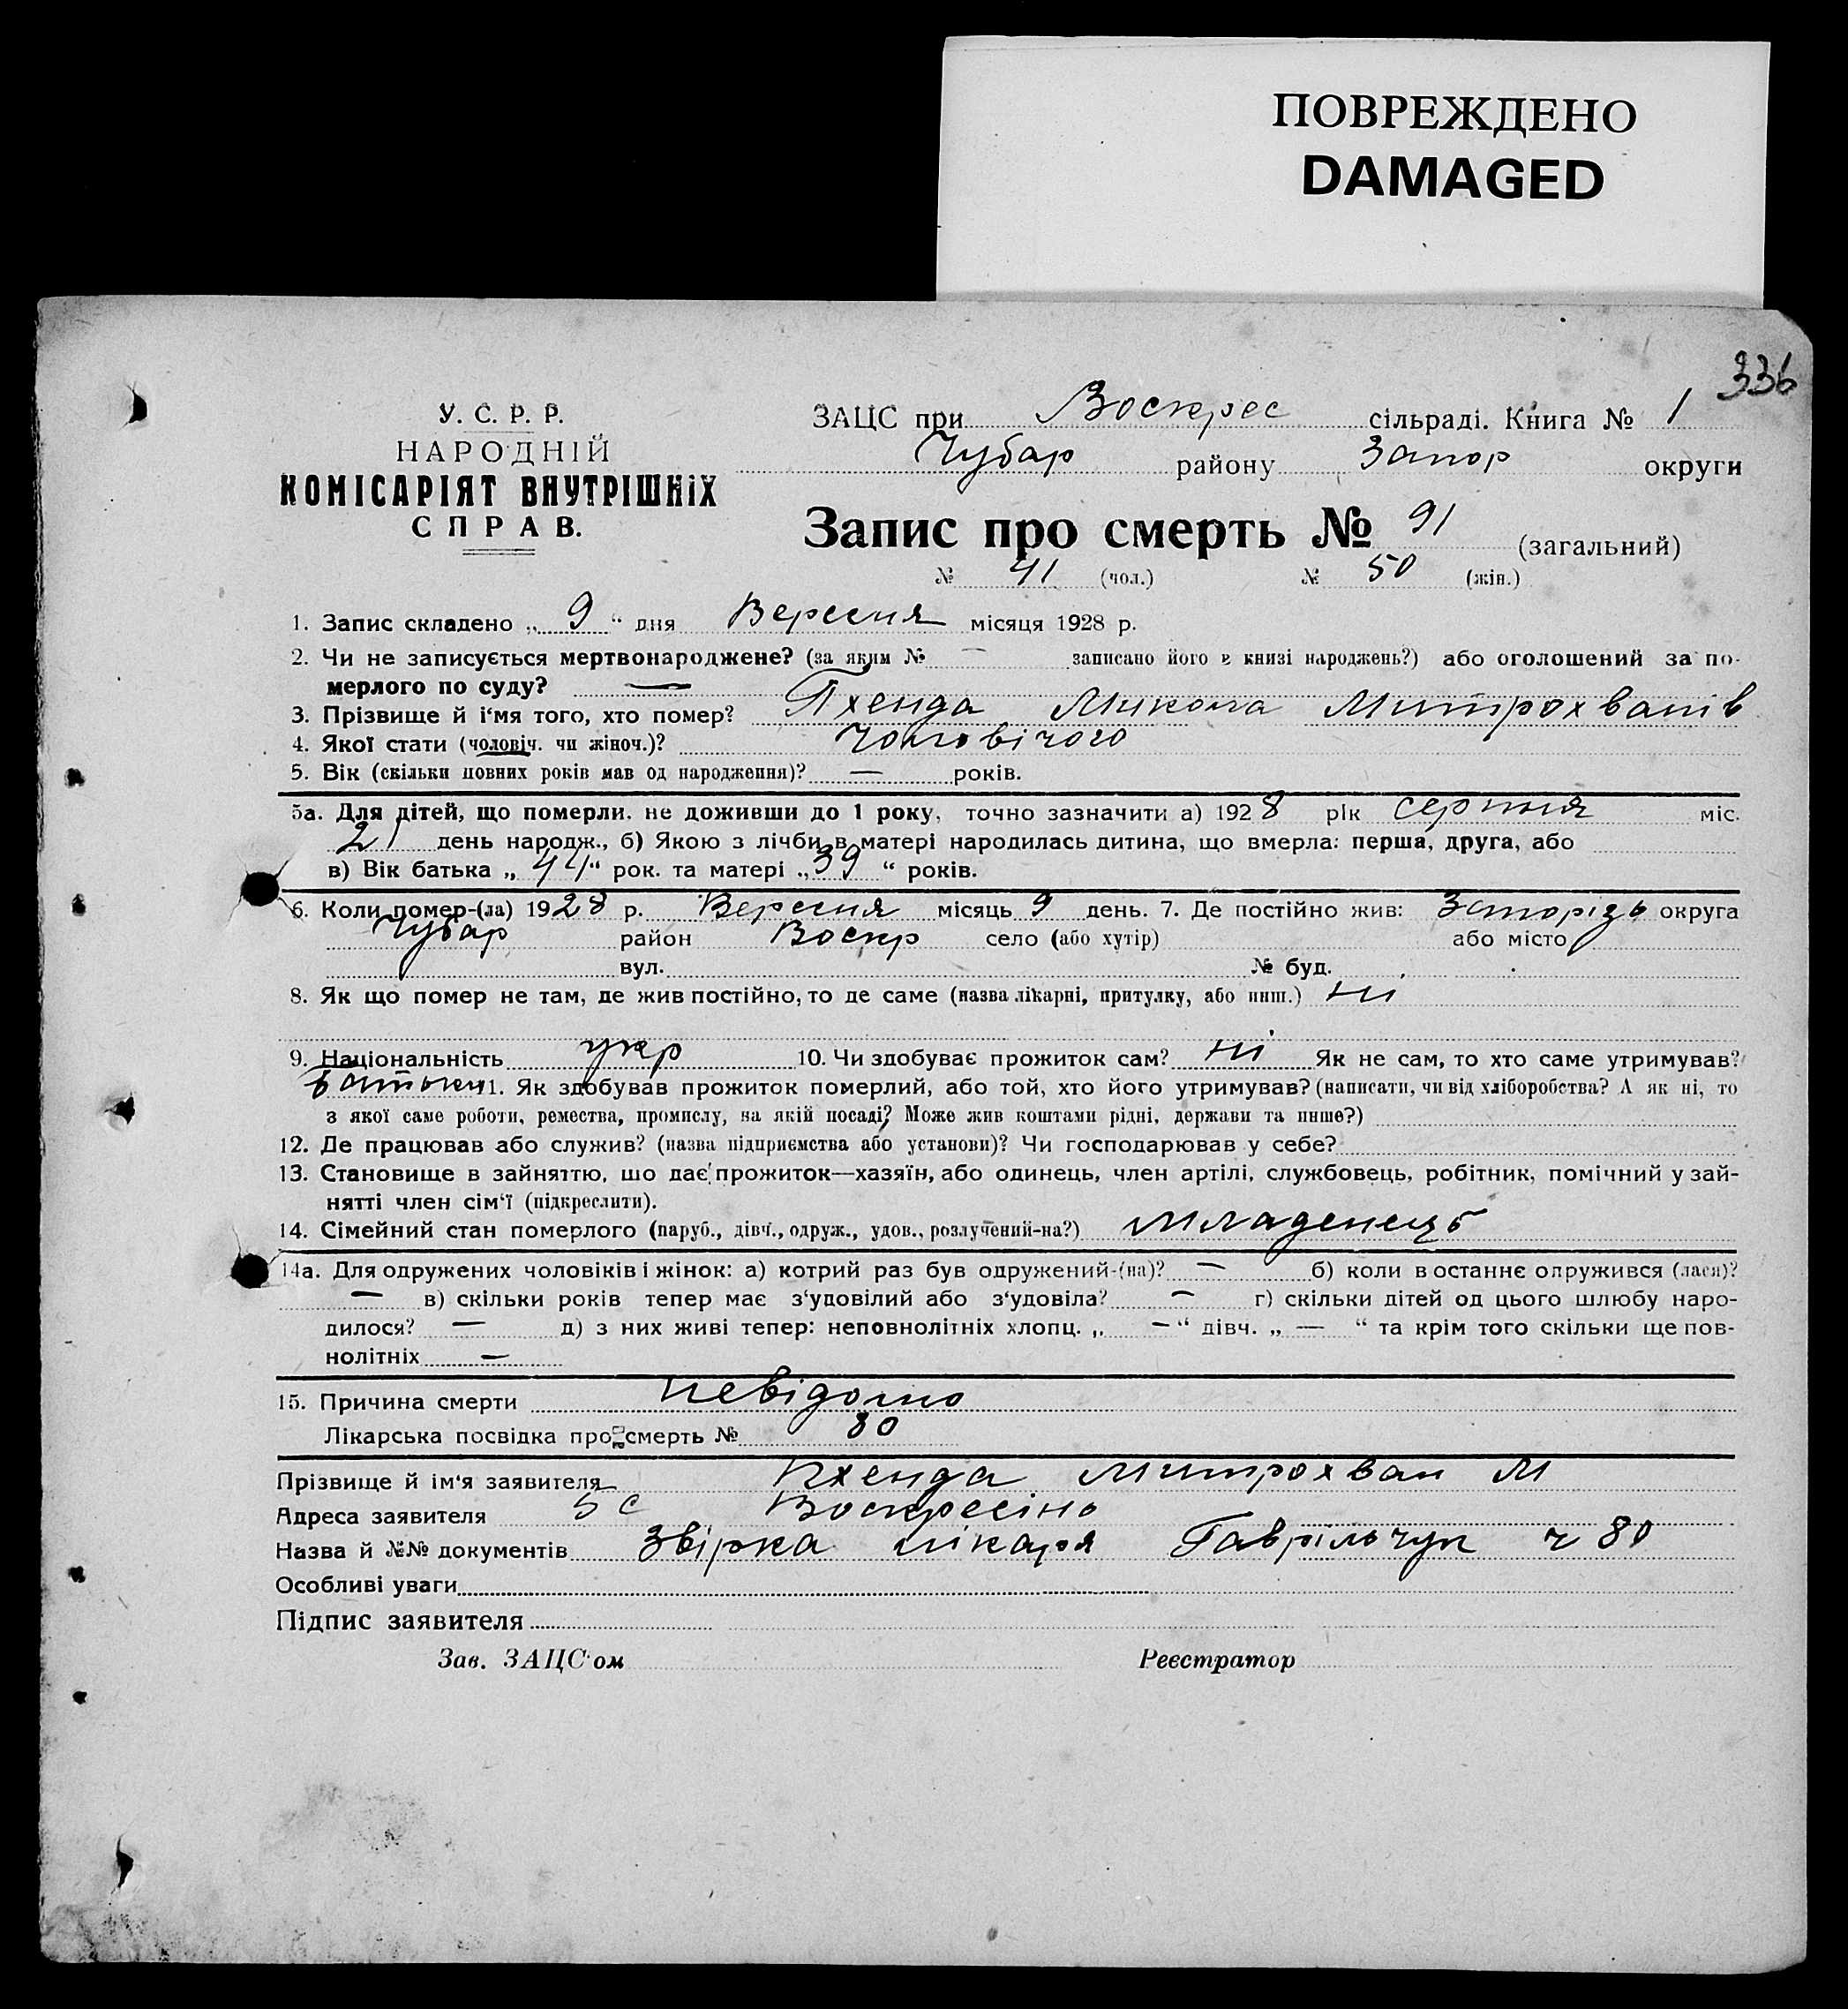 ПОВРЕЖДЕНО
DAMAGED
336
У. С. Р. Р.
НАРОДНІЙ
КОМІСАРІЯТ ВНУТРІШНІХ
СПРАВ.
ЗАЦС при Воскрес сільраді. Книга № 1
Чубар району Запор округи
Запис про смерть № 91 (загальний)
№ 41 (чол.) № 50 (жін.)
1. Запис складено „ 9 “ дня Вересня місяця 1928 р.
2. Чи не записується мертвонароджене? (за яким № — записано його в книзі народжень?) або оголошений за по-
мерлого по суду? —
3. Прізвище й і‘мя того, хто помер? Пхенда Микола Митрохванів
4. Якої стати (чоловіч. чи жіноч.)? Чоловічого
5. Вік (скільки повних років мав од народження)? — років.
5а. Для дітей, що померли, не доживши до 1 року, точно зазначити а) 1928 рік серпня міс.
21 день народж., б) Якою з лічби в матері народилась дитина, що вмерла: перша, друга, або
в) Вік батька „ 44 “ рок. та матері „ 39 “ років.
6. Коли помер-(ла) 1928 р. Вересня місяць 9 день. 7. Де постійно жив: Запорізь округа
Чубар район Воскр село (або хутір) або місто
вул. № буд.
8. Як що помер не там, де жив постійно, то де саме (назва лікарні, притулку, або инш.) ні
9. Національність укр 10. Чи здобуває прожиток сам? ні Як не сам, то хто саме утримував?
батьки 11. Як здобував прожиток померлий, або той, хто його утримував? (написати, чи від хліборобства? А як ні, то
з якої саме роботи, ремества, промислу, на якій посаді? Може жив коштами рідні, держави та инше?)
12. Де працював або служив? (назва підприємства або установи)? Чи господарював у себе?
13. Становище в зайняттю, що дає прожиток—хазяїн, або одинець, член артілі, службовець, робітник, помічний у зай-
нятті член сім‘ї (підкреслити).
14. Сімейний стан померлого (паруб., дівч., одруж., удов., розлучений-на?) Младенець
14а. Для одружених чоловіків і жінок: а) котрий раз був одружений-(на)? — б) коли востаннє одружився (лася)?
— в) скільки років тепер має з‘удовілий або з‘удовіла? — г) скільки дітей од цього шлюбу наро-
дилося? — д) з них живі тепер: неповнолітніх хлопц. „ — “ дівч. „ — “ та крім того скільки ще пов-
нолітніх —
15. Причина смерти невідомо
Лікарська посвідка про смерть № 80
Прізвище й ім‘я заявителя Пхенда Митрохван М
Адреса заявителя с Воскресіно
Назва й №№ документів Звірка лікаря Гаврільчук ч 80
Особливі уваги
Підпис заявителя
Зав. ЗАЦС‘ом Реєстратор